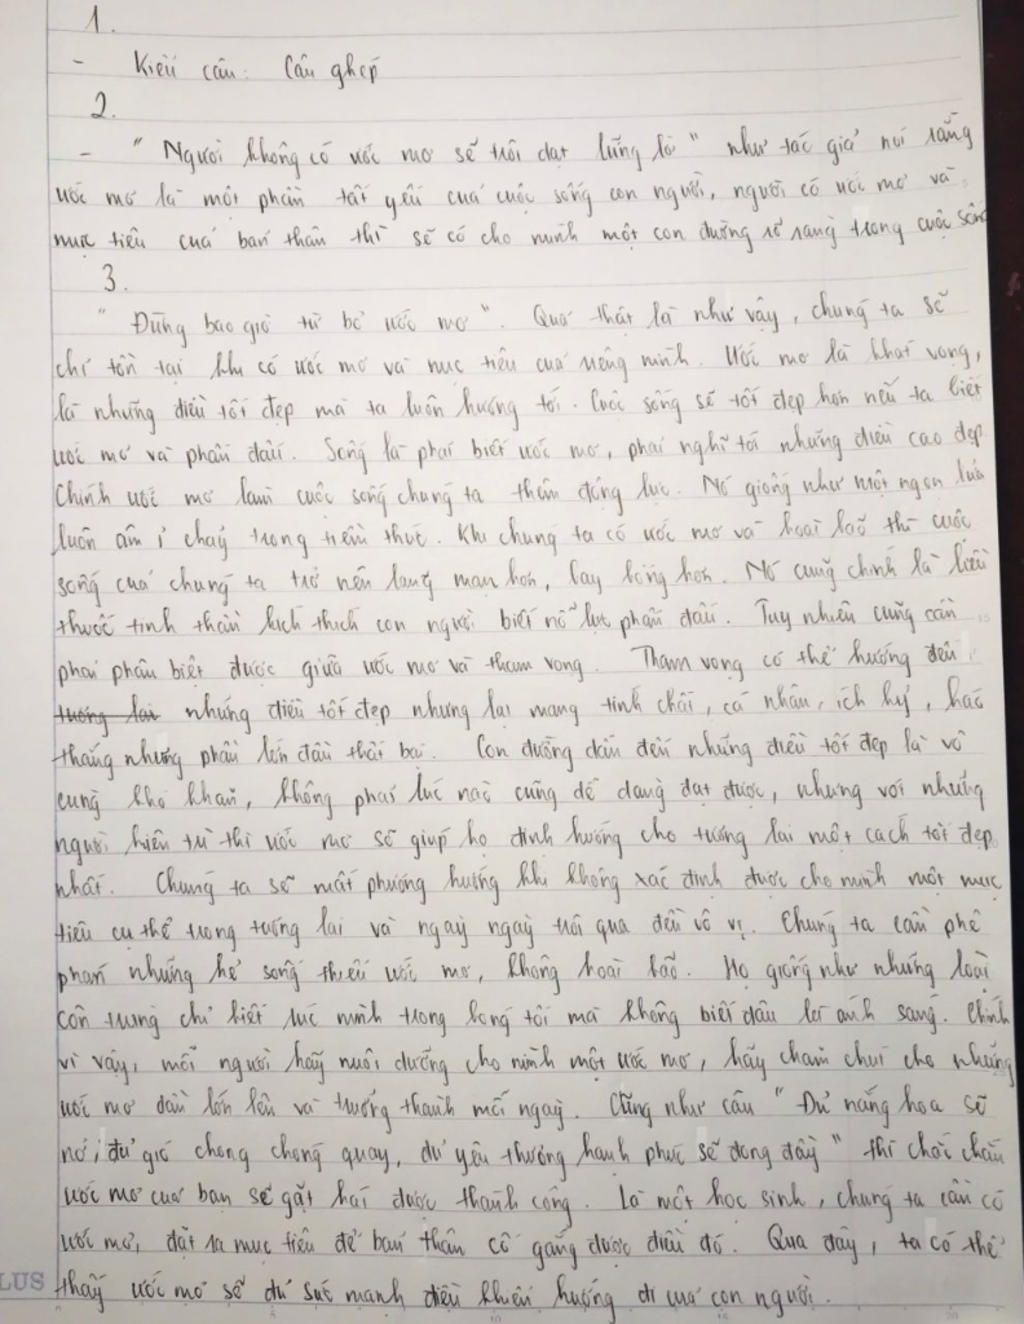 1.
- Kiểu câu: Câu ghép
2.
- "Người không có ước mơ sẽ trôi dạt lững lờ" như tác giả nói rằng
ước mơ là một phần tất yếu của cuộc sống con người, người có ước mơ và
mục tiêu của bản thân thì sẽ có cho mình một con đường rõ ràng trong cuộc sống
3.
"Đừng bao giờ từ bỏ ước mơ". Quả thật là như vậy, chúng ta sẽ
chỉ tồn tại khi có ước mơ và mục tiêu của riêng mình. Ước mơ là khát vọng,
là những điều tốt đẹp mà ta luôn hướng tới. Cuộc sống sẽ tốt đẹp hơn nếu ta biết
ước mơ và phấn đấu. Sống là phải biết ước mơ, phải nghĩ tới những điều cao đẹp.
Chính ước mơ làm cuộc sống chúng ta thêm động lực. Nó giống như một ngọn lửa
luôn âm ỉ cháy trong tiềm thức. Khi chúng ta có ước mơ và hoài bão thì cuộc
sống của chúng ta trở nên lãng mạn hơn, bay bổng hơn. Nó cũng chính là liều
thuốc tinh thần kích thích con người biết nỗ lực phấn đấu. Tuy nhiên cũng cần
phải phân biệt được giữa ước mơ và tham vọng. Tham vọng có thể hướng đến
tương lai những điều tốt đẹp nhưng lại mang tính chất, cá nhân, ích kỷ, hác
thắng nhưng phần lớn đầu thất bại. Con đường dẫn đến những điều tốt đẹp là vô
cùng khó khăn, không phải lúc nào cũng dễ dàng đạt được, nhưng với những
người kiên trì thì ước mơ sẽ giúp họ định hướng cho tương lai một cách tốt đẹp
nhất. Chúng ta sẽ mất phương hướng khi không xác định được cho mình một mục
tiêu cụ thể trong tương lai và ngày ngày trôi qua đều vô vị. Chúng ta cần phê
phán những kẻ sống thiếu ước mơ, không hoài bão. Họ giống như những loài
côn trùng chỉ biết rúc mình trong bóng tối mà không biết đâu là ánh sáng. Chính
vì vậy, mỗi người hãy nuôi dưỡng cho mình một ước mơ, hãy chăm chút cho những
ước mơ dần lớn lên và trưởng thành mỗi ngày. Cũng như câu "Đủ nắng hoa sẽ
nở, đủ gió chong chóng quay, đủ yêu thương hạnh phúc sẽ đong đầy" thì chắc chắn
ước mơ của bạn sẽ gặt hái được thành công. Là một học sinh, chúng ta cần có
ước mơ, đặt ra mục tiêu để bản thân cố gắng được điều đó. Qua đây, ta có thể
thấy ước mơ sẽ đủ sức mạnh điều khiển hướng đi của con người.
LUS